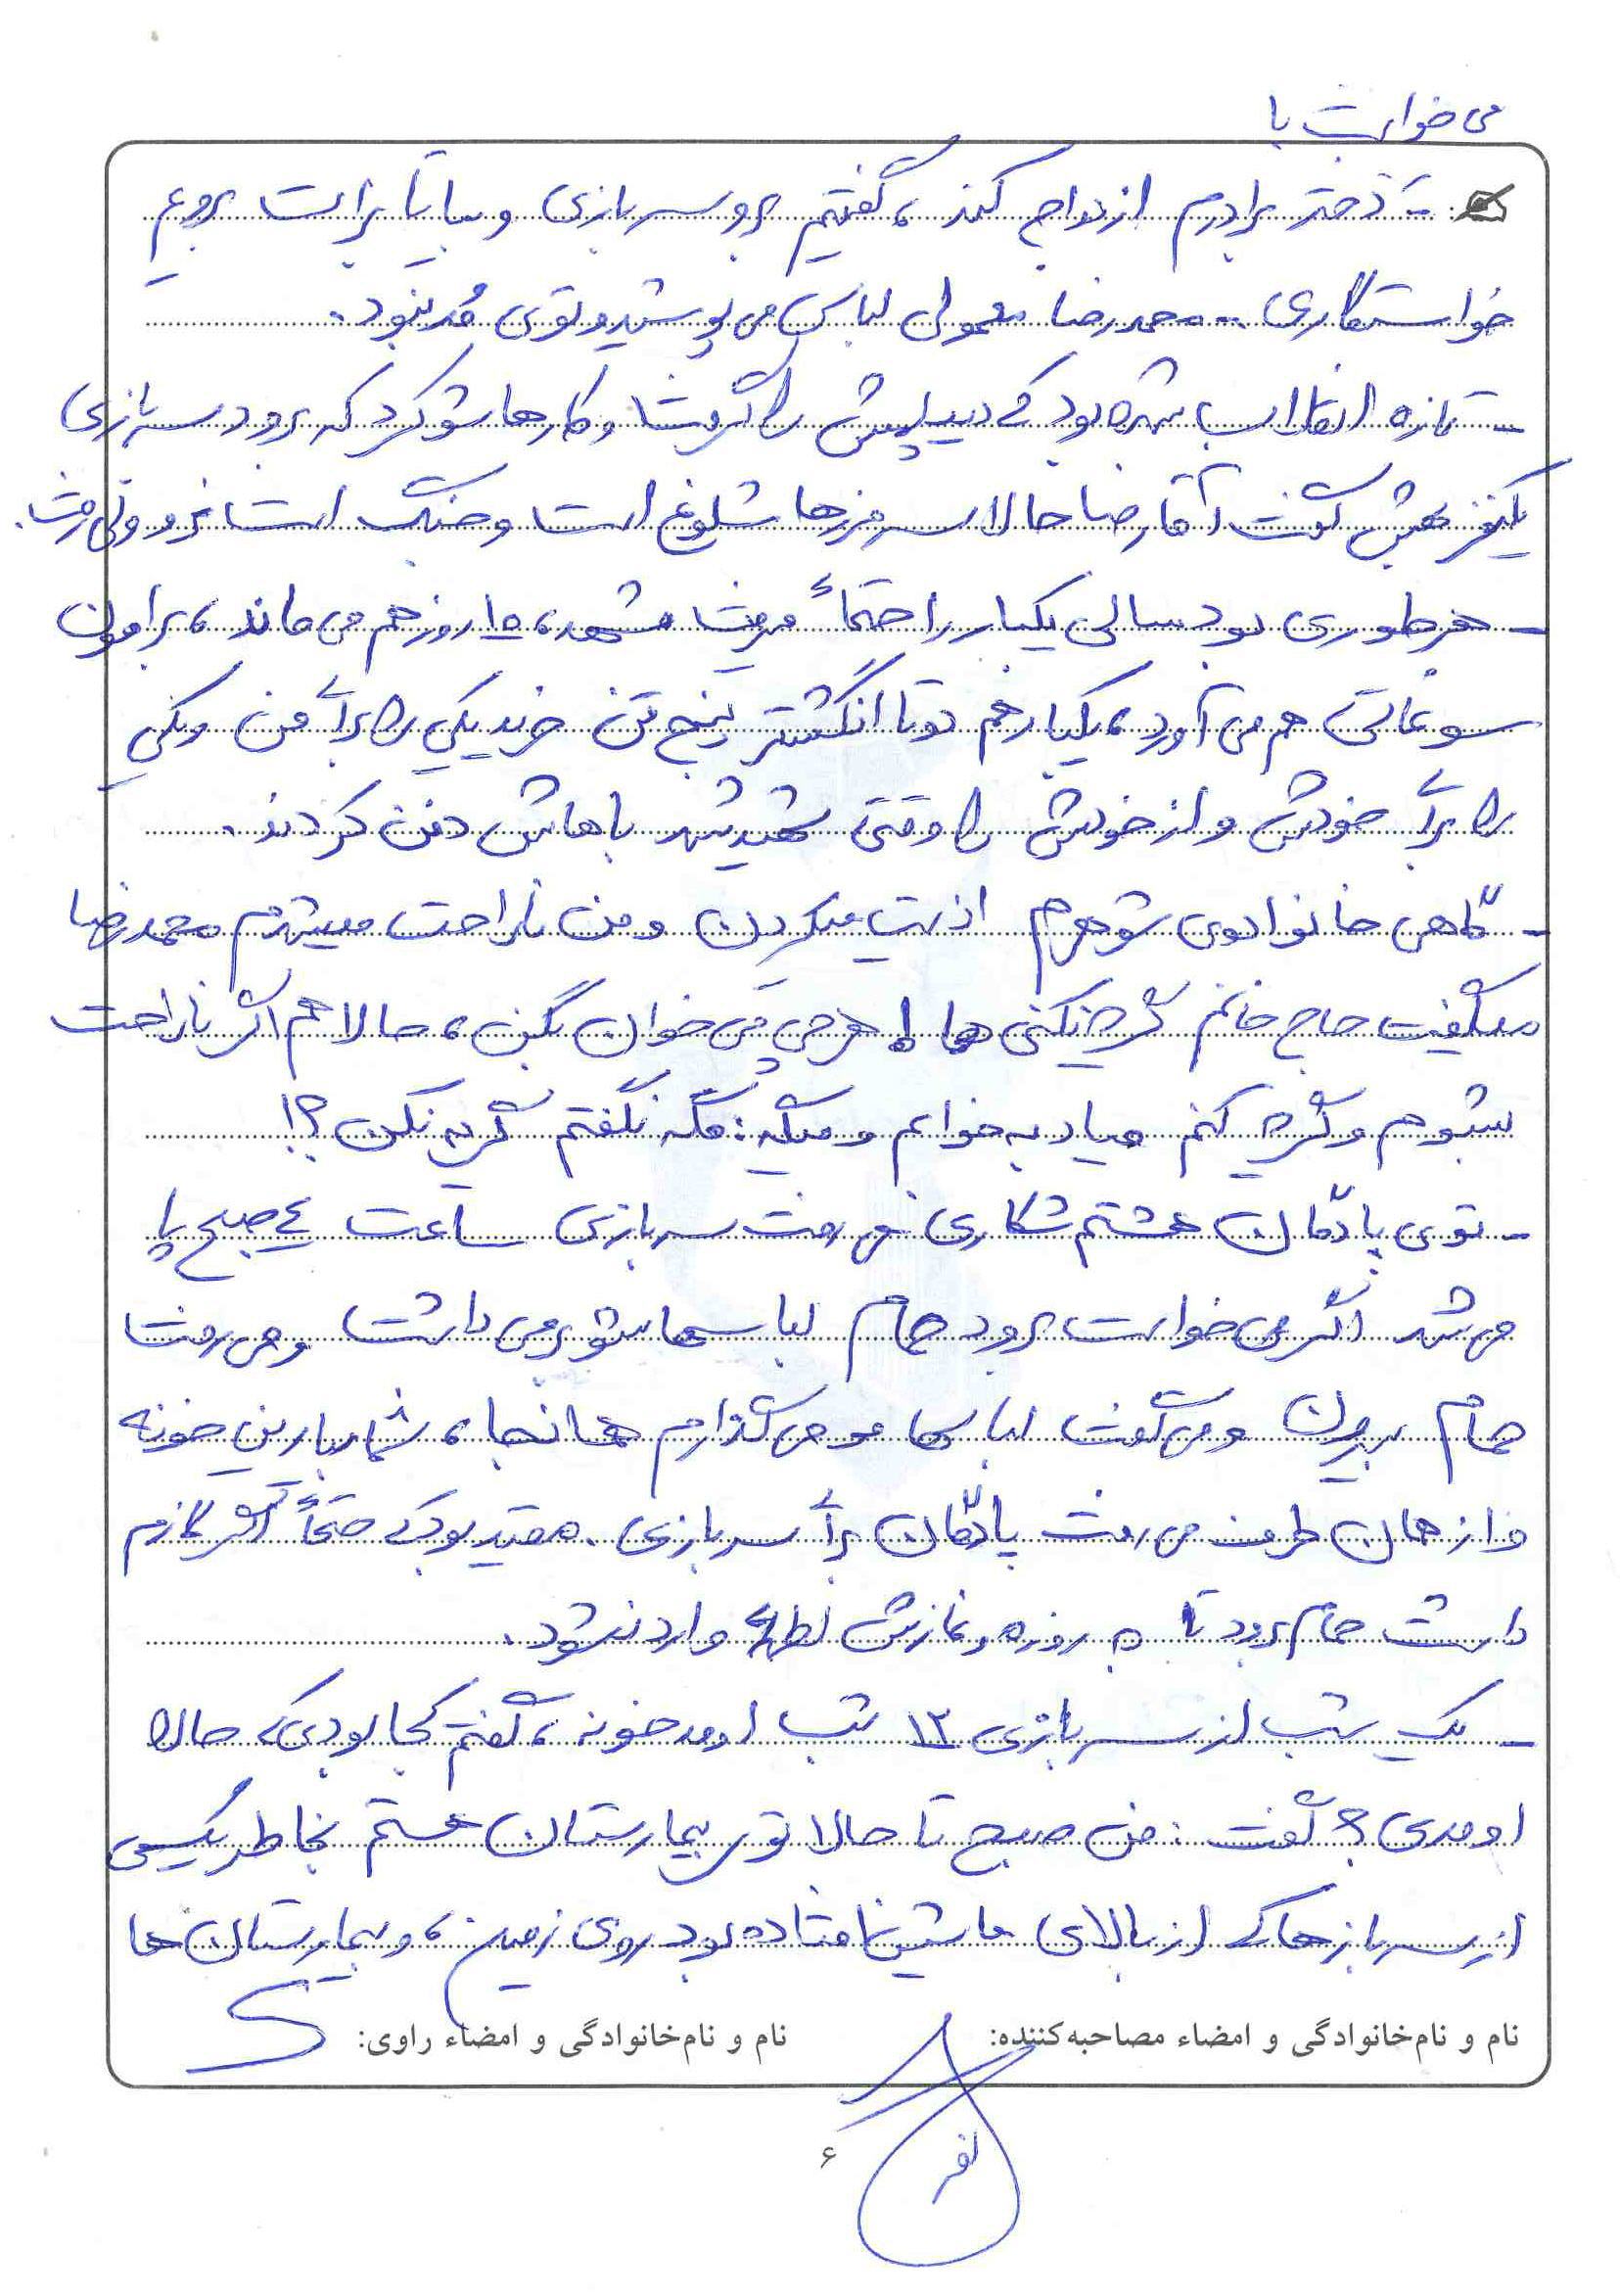 می خواست با
- دختر برادرم ازدواج کند، گفتیم برو سربازی و بیا تا برات بروم
خواستگاری -- محمدرضا معمولی لباس می پوشید و توی مُد نبود.
- تازه انقلاب شده بود که دیپلمش را گرفت و کارهاشو کرد که برود سربازی
یکنفر بهش گفت آقا رضا حالا سر مرزها شلوغ است و جنگ است نرو ولی رفت.
- هرطوری بود سالی یکبار را حتماً میرفت مشهد، ۱۵ روز هم می ماند، برامون
سوغاتی هم می آورد، یکبار هم دوتا انگشتر پنج تن خرید یکی را برای من و یکی
را برای خودش و از خودش را وقتی شهید شد باهاش دفن کردند.
- گاهی خانوادوی شوهرم اذیت میکردن و من ناراحت میشدم محمدرضا
میگفت حاج خانم گریه نکنی ها! هرچی می خوان بگن، حالا هم اگر ناراحت
بشوم و گریه کنم میاد به خوابم و میگه: مگه نگفتم گریه نکن؟!
- توی پادگان هشتم شکاری می رفت سربازی ساعت ٤ صبح پا
می شد اگر می خواست برود حمام لباسهاشو برمی داشت و می رفت
حمام بیرون و می گفت لباسها مو می گذارم همانجا، شما بیارین خونه
و از همان طرف می رفت پادگان برای سربازی. مقید بود که حتماً اگر لازم
داشت حمام برود تا به روزه و نمازش لطمه وارد نشود.
- یک شب از سربازی ۱۲ شب اومد خونه، گفتم کجا بودی که حالا
اومدی؟ گفت: من صبح تا حالا توی بیمارستان هستم بخاطر یکی
از سربازها که از بالای ماشین افتاده بود روی زمین، و بیمارستان ها
نام و نام‌خانوادگی و امضاء مصاحبه‌کننده:
نام و نام‌خانوادگی و امضاء راوی:
۶